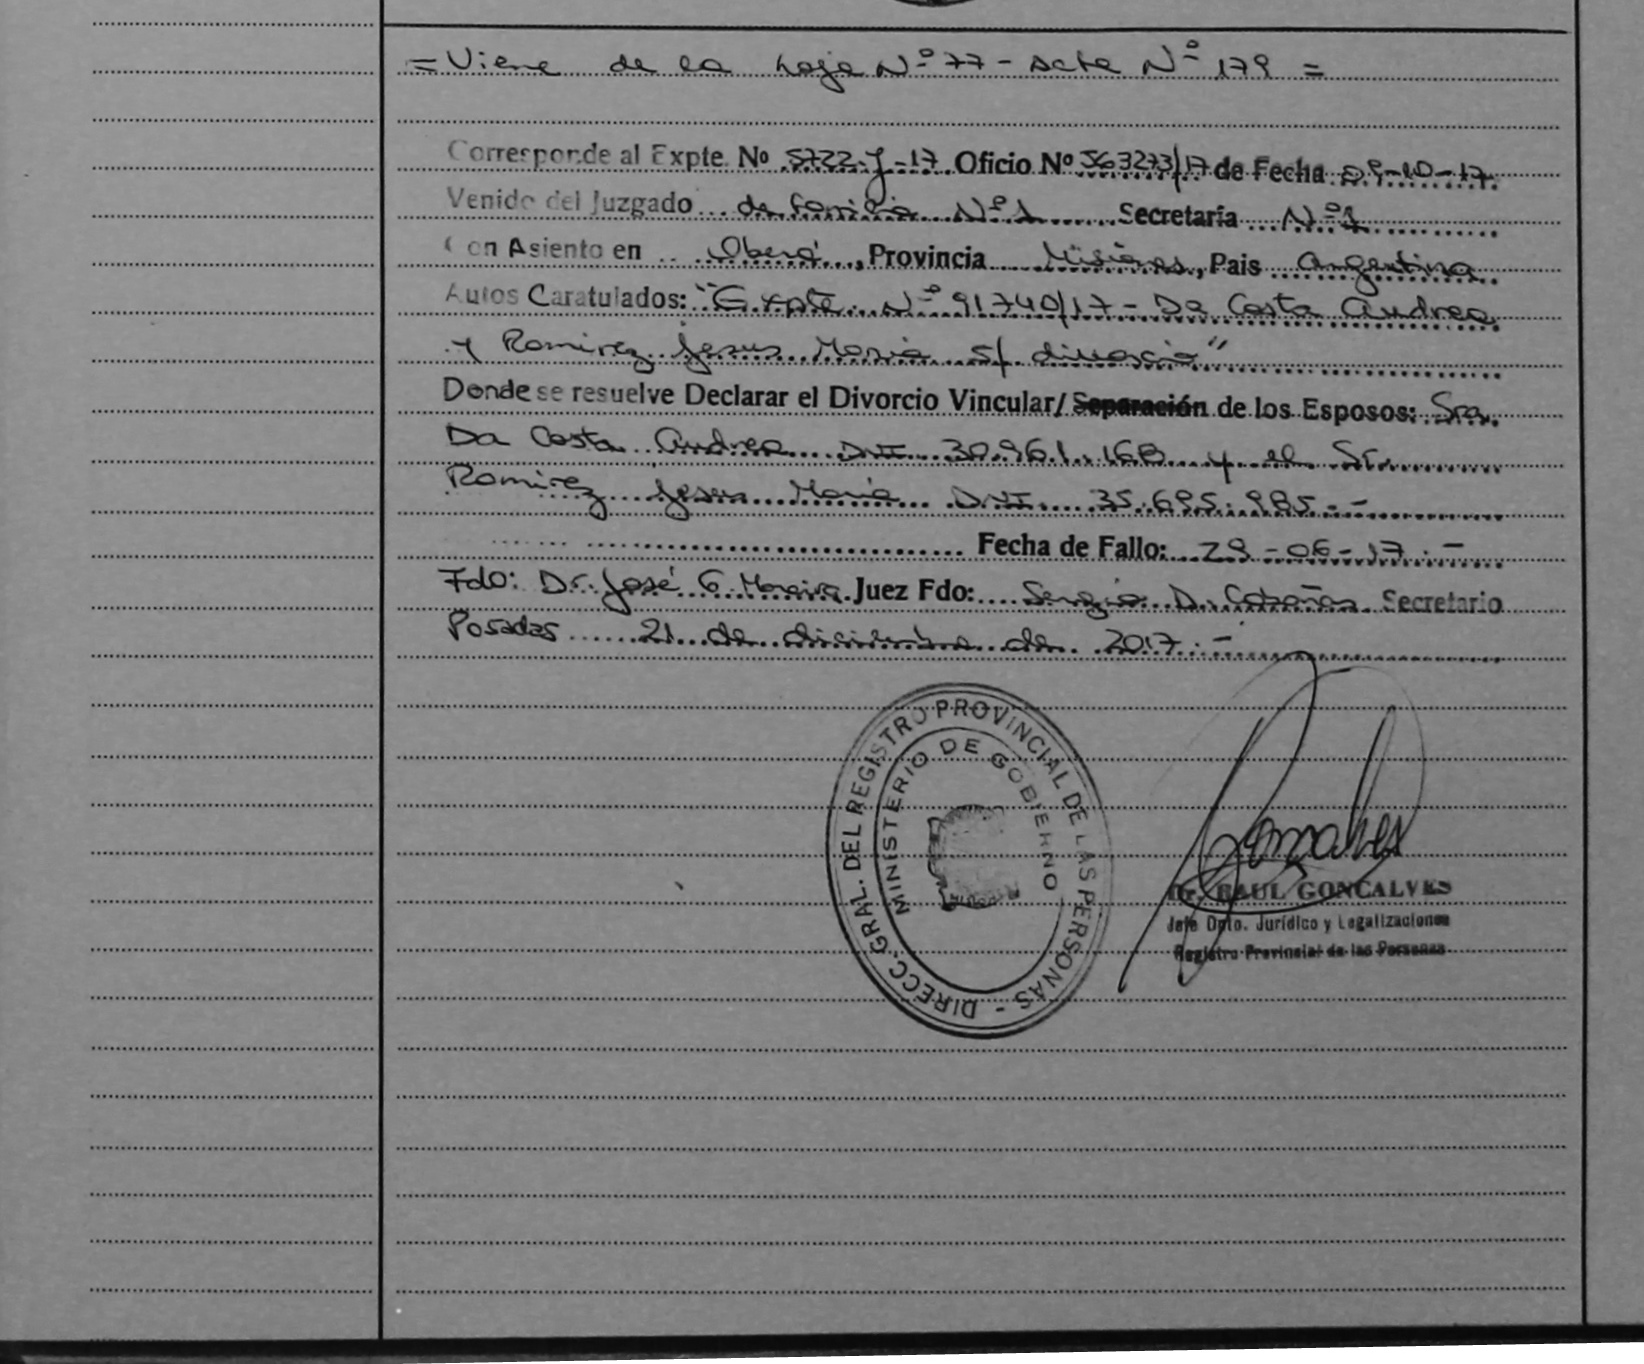 = Viene de la hoja Nº 77 - Acta Nº 179 =
Corresponde al Expte. Nº 5722-J-17 Oficio Nº 563273/17 de Fecha 09-10-17.
Venido del Juzgado de familia Nº 1 Secretaría Nº 1
Con Asiento en Oberá, Provincia Misiones, Pais Argentina
Autos Caratulados: "Expte Nº 91740/17 - Da Costa Andrea
y Ramirez Jesus Maria s/ divorcio"
Donde se resuelve Declarar el Divorcio Vincular/ Separación de los Esposos: Sra.
Da Costa Andrea DNI 30.961.168 y el Sr.
Ramirez Jesus Maria DNI 35.695.985.-
Fecha de Fallo: 29-06-17.-
Fdo: Dr. José G. Moreira Juez Fdo: Sergio D. Cabañas Secretario
Posadas 21 de diciembre de 2017.-
DIRECC. GRAL. DEL REGISTRO PROVINCIAL DE LAS PERSONAS -
MINISTERIO DE GOBIERNO
Dr. RAUL GONCALVES
Jefe Dpto. Jurídico y Legalizaciones
Registro Provincial de las Personas